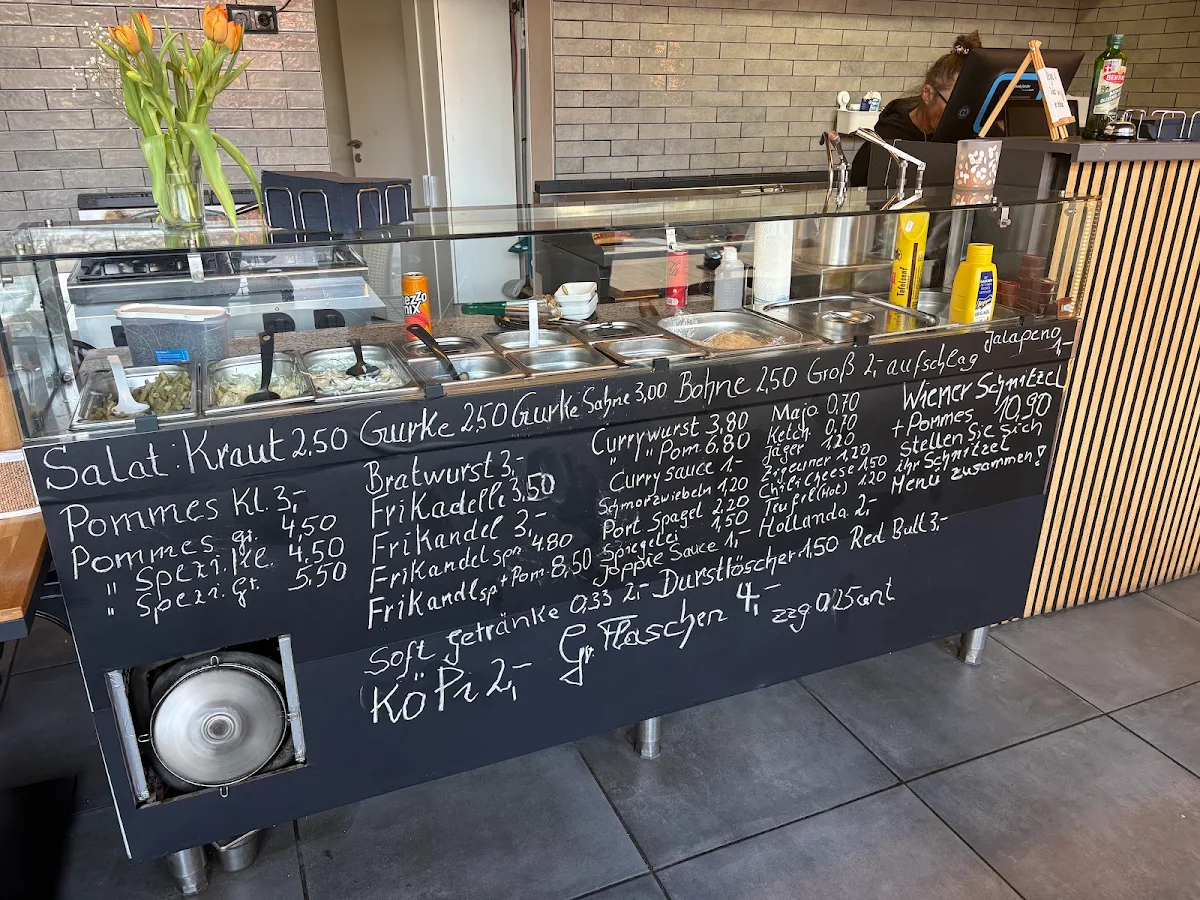 Salat: Kraut 2,50 Gurke 2,50 Gurke Sahne 3,00 Bohne 2,50 Groß 2,- aufschlag Jalapeno 1,-
Pommes Kl. 3,-
Pommes gr. 4,50
" Spezi. Kl. 4,50
" Spezi. Gr. 5,50
Bratwurst 3,-
Frikadelle 3,50
Frikandel 3,-
Frikandel spz. 4.80
Frikandl sp + Pom. 8,50
Currywurst 3,80
" " Pom. 6,80
Curry sauce 1,-
Schmorzwiebeln 1,20
Port Spagel 2,20
Spiegelei 1,50
Joppie Sauce 1,-
Majo 0,70
Ketch. 0,70
Jäger 1,20
Zigeuner 1,20
Chili Cheese 1,50
Teufel (Hot) 1,20
Hollanda. 2,-
Wiener Schnitzel
+ Pommes 10,90
Stellen Sie sich
ihr Schnitzel
Menü zusammen!
Soft getränke 0,33 2,- Durstlöscher 1,50 Red Bull 3,-
KöPi 2,- Gr. Flaschen 4,-
zzg 0,25 ant
mezzo
mix
Tafelsenf